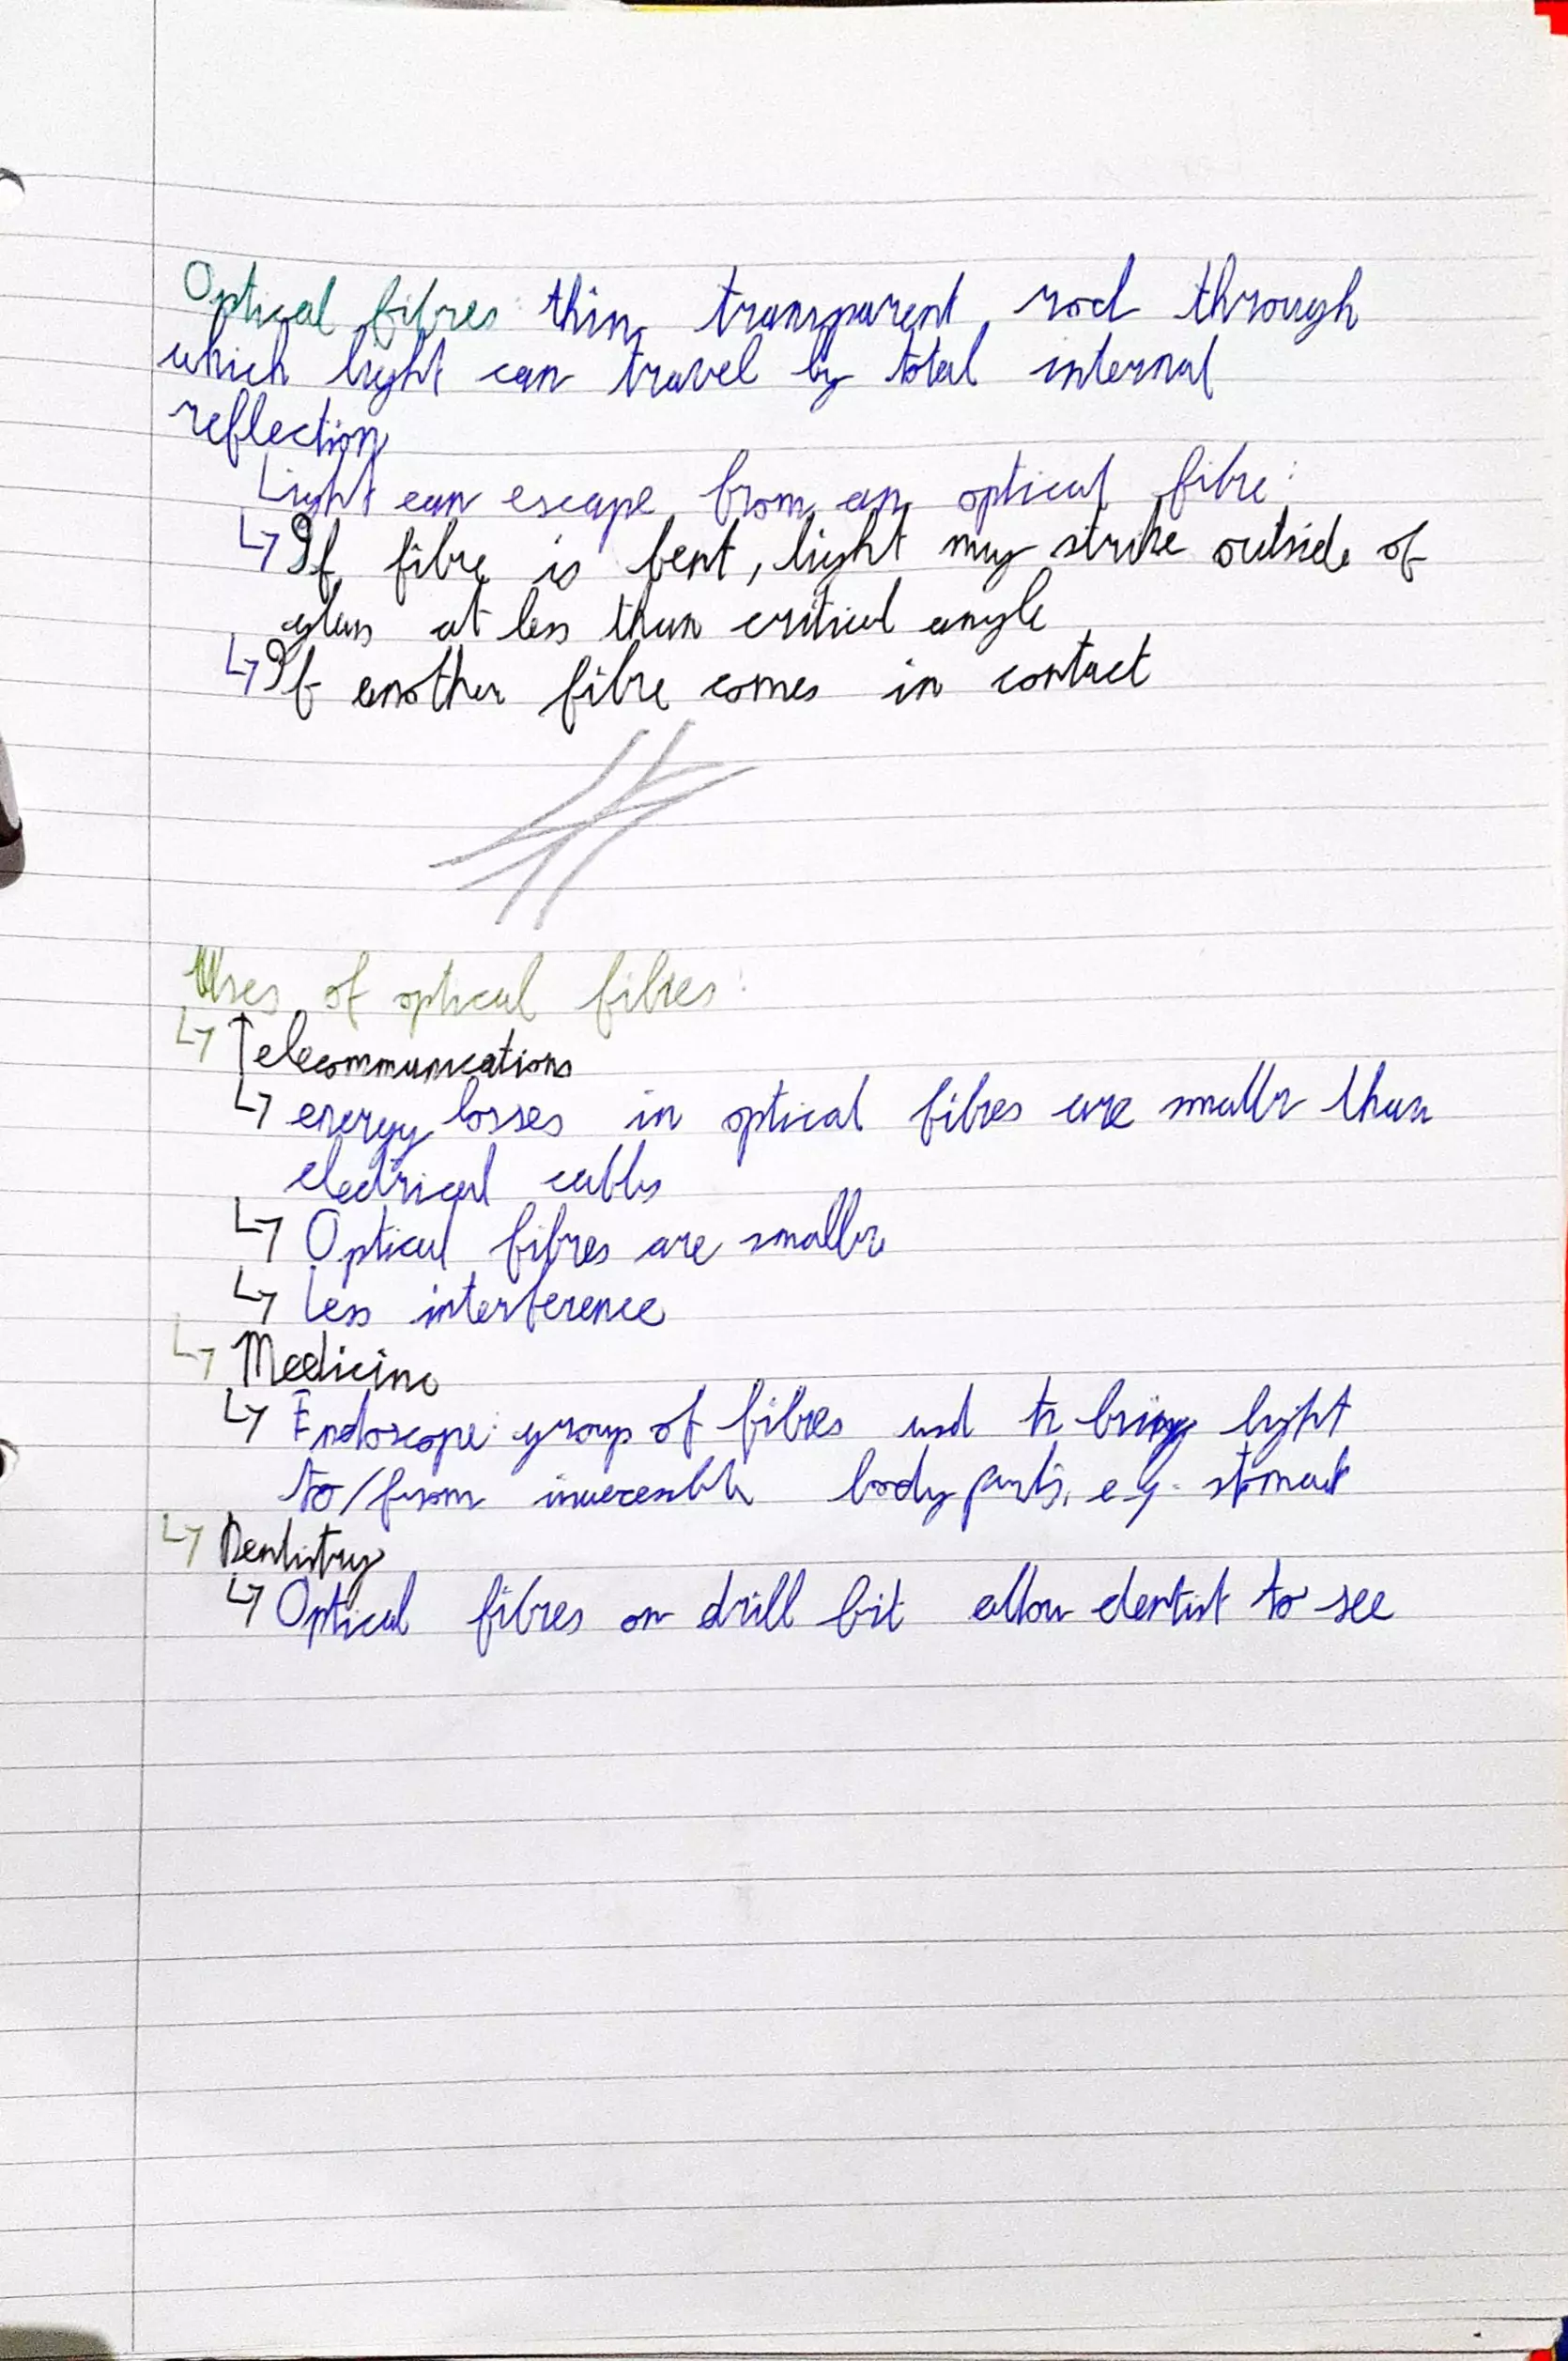 Optical fibres: thin transparent rod through
which light can travel by total internal
reflection
Light can escape from an optical fibre:
↳ If fibre is bent, light may strike outside of
glass at less than critical angle
↳ If another fibre comes in contact
Uses of optical fibres:
↳ Telecommunications
↳ energy losses in optical fibres are smaller than
electrical cables
↳ Optical fibres are smaller
↳ Less interference
↳ Medicine
↳ Endoscope: group of fibres used to bring light
to/from inaccessible body parts, e.g. stomach
↳ Dentistry
↳ Optical fibres on drill bit allow dentist to see